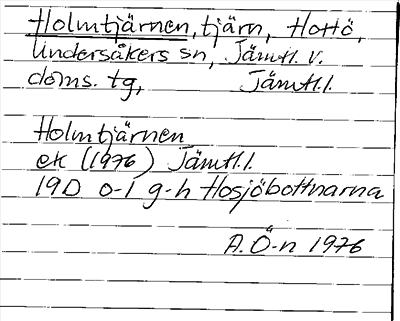 Holmtjärnen, tjärn, Hottö,
Undersåkers sn, Jämtl. v.
doms. tg, Jämtl.l.
Holmtjärnen
ek (1976) Jämtl.l.
19D 0-1 g-h Hosjöbottnarna
A.Ö-n 1976